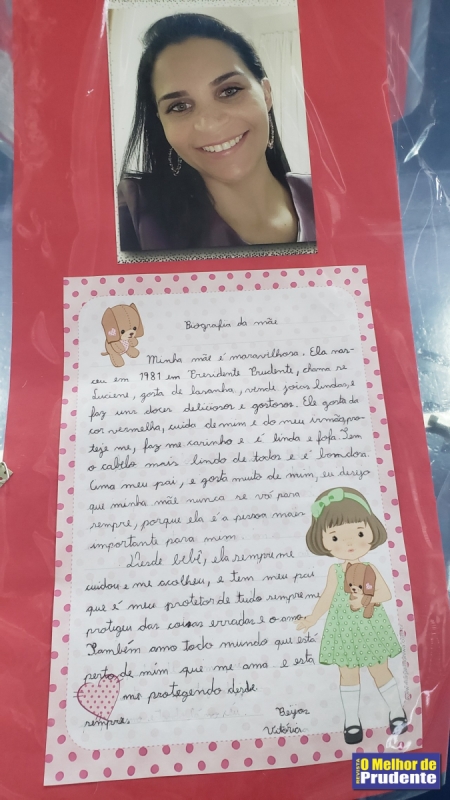 Biografia da mãe
Minha mãe é maravilhosa. Ela nas-
ceu em 1981 em Presidente Prudente, chama se
Luciene, gosta de lasanha, vende joias lindas, e
faz uns doces deliciosos e gostosos. Ela gosta da
cor vermelha, cuida de mim e do meu irmão, pro-
teje me, faz me carinho e é linda e fofa. Tem
o cabelo mais lindo de todos e é bondosa.
Ama meu pai, e gosta muito de mim, eu desejo
que minha mãe nunca se vá para
sempre, porque ela é a pessoa mais
importante para mim.
Desde bebê, ela sempre me
cuidou e me acolheu, e tem meu pai
que é meu protetor de tudo sempre me
protegeu das coisas erradas e o amo.
Também amo todo mundo que está
perto de mim que me ama e está
me protegendo desde
sempre.
Beijos
Vitória
REVISTA
O Melhor de
Prudente